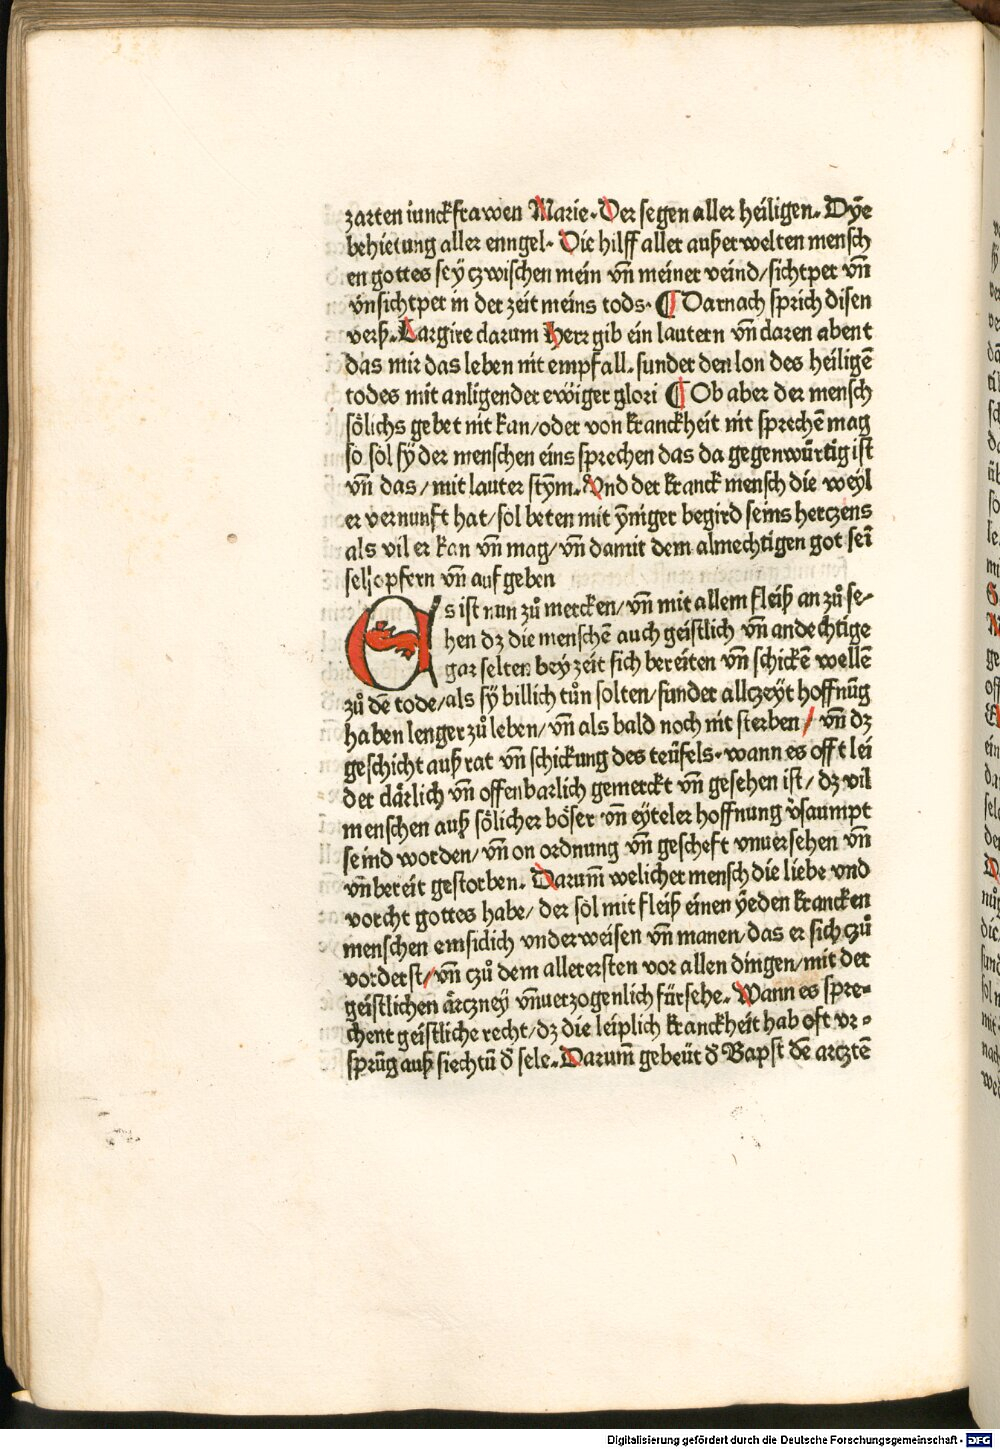 zarten iunckfrawen Marie. Der segen aller heiligen. Dÿe
behietung aller enngel. Die hilff aller außerwelten mensch
en gottes seÿ czwischen mein vn̄ meiner veind/sichtper vn̄
vnsichtper in der zeit meins tods. ¶ Darnach sprich disen
verß. Largire darum Herr gib ein lautern vn̄ claren abent
das mir das leben nit empfall. sunder den lon des heiligē
todes mit anligender ewiger glori ¶ Ob aber der mensch
sölichs gebet nit kan/oder von kranckheit nit sprechē mag
so sol sÿ der menschen eins sprechen das da gegenwürtig ist
vn̄ das/mit lauter stÿm. Vnd der kranck mensch die weÿl
er vernunft hat/sol beten mit ÿniger begird seins herczens
als vil er kan vn̄ mag/vn̄ damit dem almechtigen got sei
sel opfern vn̄ auf geben
Es ist nun zů mercken/vn̄ mit allem fleiß an zů se-
hen dz die menschē auch geistlich vn̄ andechtige
gar selten beÿ zeit sich bereiten vn̄ schickē wellē
zů dē tode/als sÿ billich tůn solten/sunder allczeÿt hoffnūg
haben lenger zů leben/vn̄ als bald noch nit sterben/vn̄ dz
geschicht auß rat vn̄ schickung des teüfels. wann es offt lei
der clärlich vn̄ offenbarlich gemerckt vn̄ gesehen ist/dz vil
menschen auß sölicher böser vn̄ eÿteler hoffnung v̓saumpt
seind worden/vn̄ on ordnung vn̄ gescheft vnuersehen vn̄
vn̄bereit gestorben. Darum̄ welicher mensch die liebe vnd
vorcht gottes habe/der sol mit fleiß einen ÿeden krancken
menschen emsiclich vnderweisen vn̄ manen/das er sich czů
vorderst/vn̄ czů dem allerersten vor allen dingen/mit der
geistlichen ärczneÿ vn̄uerzogenlich fürsehe. Wann es spre-
chent geistliche recht/dz die leiplich kranckheit hab oft vr-
sprūg auß siechtū d̓ sele. Darum̄ gebeüt d̓ Bapst dē arcztē
Digitalisierung gefördert durch die Deutsche Forschungsgemeinschaft - DFG